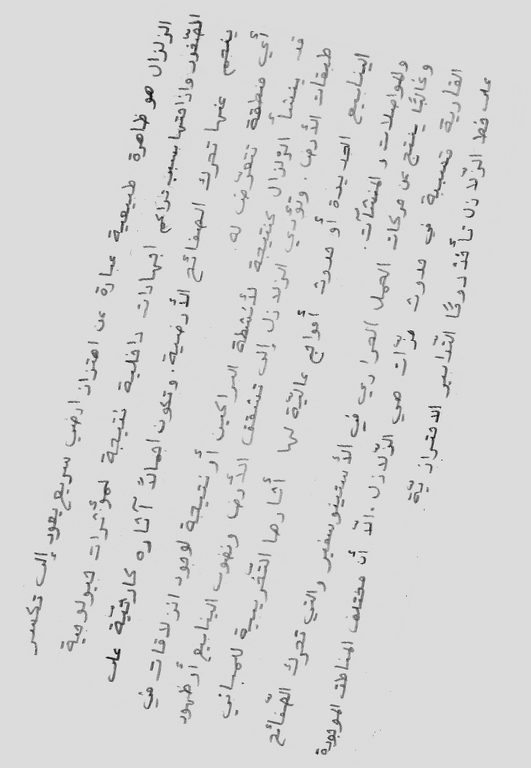 الزلزال هو ظاهرة طبيعية عبارة عن اهتزاز ارضي سريع يعود إلى تكسر
الصخور وازاحتها بسبب تراكم اجهادات داخلية نتيجة لمؤثرات جيولوجية
ينجم عنها تحرك الصفائح الأرضية. وتكون اجمالاً آثاره كارثيّة على
أي منطقة تتعرّض له.
قد ينشأ الزلزال كنتيجة لأنشطة البراكين أو نتيجة لوجود انزلاقات في
طبقات الأرض. وتؤدي الزلازل إلى تشقق الأرض ونضوب الينابيع أو ظهور
الينابيع الجديدة أو حدوث أمواج عاليّة لها آثارها التّخريبية للمباني
والمواصلات والمنشآت.
وغالبًا ينتج عن حركات الحمل الحراري في الأستينوسفير والتي تحرك الصّفائح
القارية متسببة في حدوث هزّات هي الزّلازل. الاّ أن مختلف المناطق الموجودة
على خط الزّلازل تأخذ دومًا التّدابير الاحترازيّة.